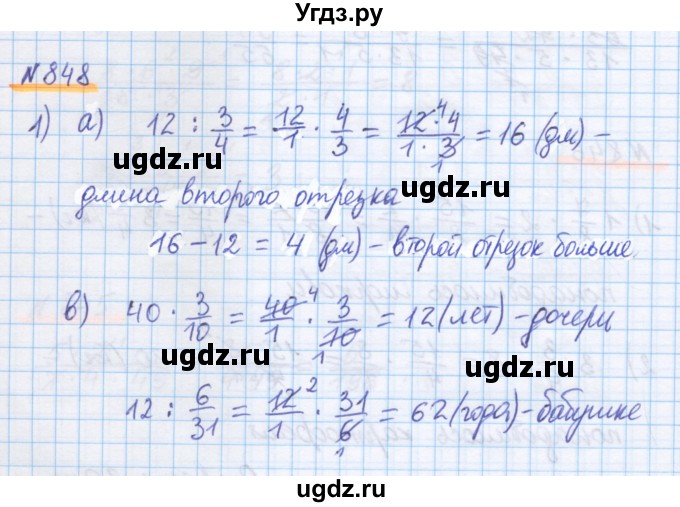 Угдз.ру
N 848
1) а) 12 : 3/4 = 12/1 · 4/3 = 12·4/1·3 = 16 (дм) –
длина второго отрезка
ugdz.ru ugdz.ru
16 – 12 = 4 (дм) – второй отрезок больше.
в) 40 · 3/10 = 40/1 · 3/10 = 12 (лет) – дочери
ugdz.ru ugdz.ru
12 : 6/31 = 12/1 · 31/6 = 62 (года) – бабушке
ugdz.ru
ugdz.ru